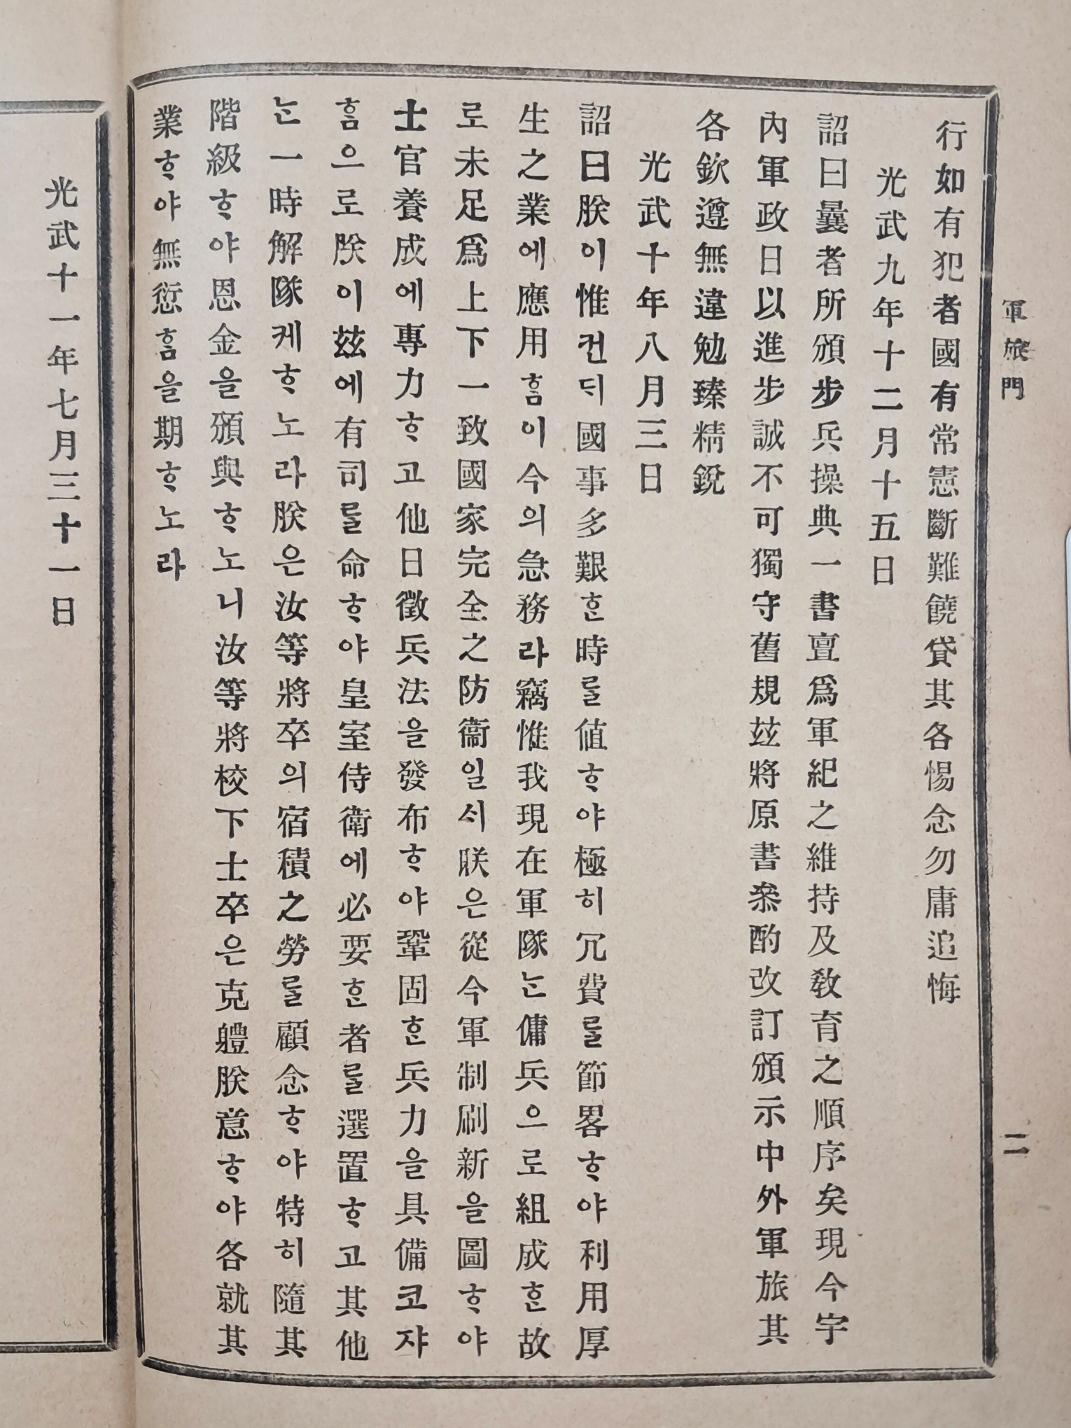 軍旅門
二
行如有犯者國有常憲斷難饒貸其各惕念勿庸追悔
光武九年十二月十五日
詔曰曩者所頒步兵操典一書亶爲軍紀之維持及敎育之順序矣現今宇
內軍政日以進步誠不可獨守舊規玆將原書叅酌改訂頒示中外軍旅其
各欽遵無違勉臻精銳
光武十年八月三日
詔曰朕이惟컨ᄃᆡ國事多艱ᄒᆞᆫ時ᄅᆞᆯ値ᄒᆞ야極히冗費ᄅᆞᆯ節畧ᄒᆞ야利用厚
生之業에應用ᄒᆞᆷ이今의急務라竊惟我現在軍隊ᄂᆞᆫ傭兵으로組成ᄒᆞᆫ故
로未足爲上下一致國家完全之防衞일ᄉᆡ朕은從今軍制刷新을圖ᄒᆞ야
士官養成에專力ᄒᆞ고他日徵兵法을發布ᄒᆞ야鞏固ᄒᆞᆫ兵力을具備코쟈
ᄒᆞᆷ으로朕이玆에有司ᄅᆞᆯ命ᄒᆞ야皇室侍衛에必要ᄒᆞᆫ者ᄅᆞᆯ選置ᄒᆞ고其他
ᄂᆞᆫ一時解隊케ᄒᆞ노라朕은汝等將卒의宿積之勞ᄅᆞᆯ顧念ᄒᆞ야特히隨其
階級ᄒᆞ야恩金을頒與ᄒᆞ노니汝等將校下士卒은克軆朕意ᄒᆞ야各就其
業ᄒᆞ야無愆ᄒᆞᆷ을期ᄒᆞ노라
光武十一年七月三十一日